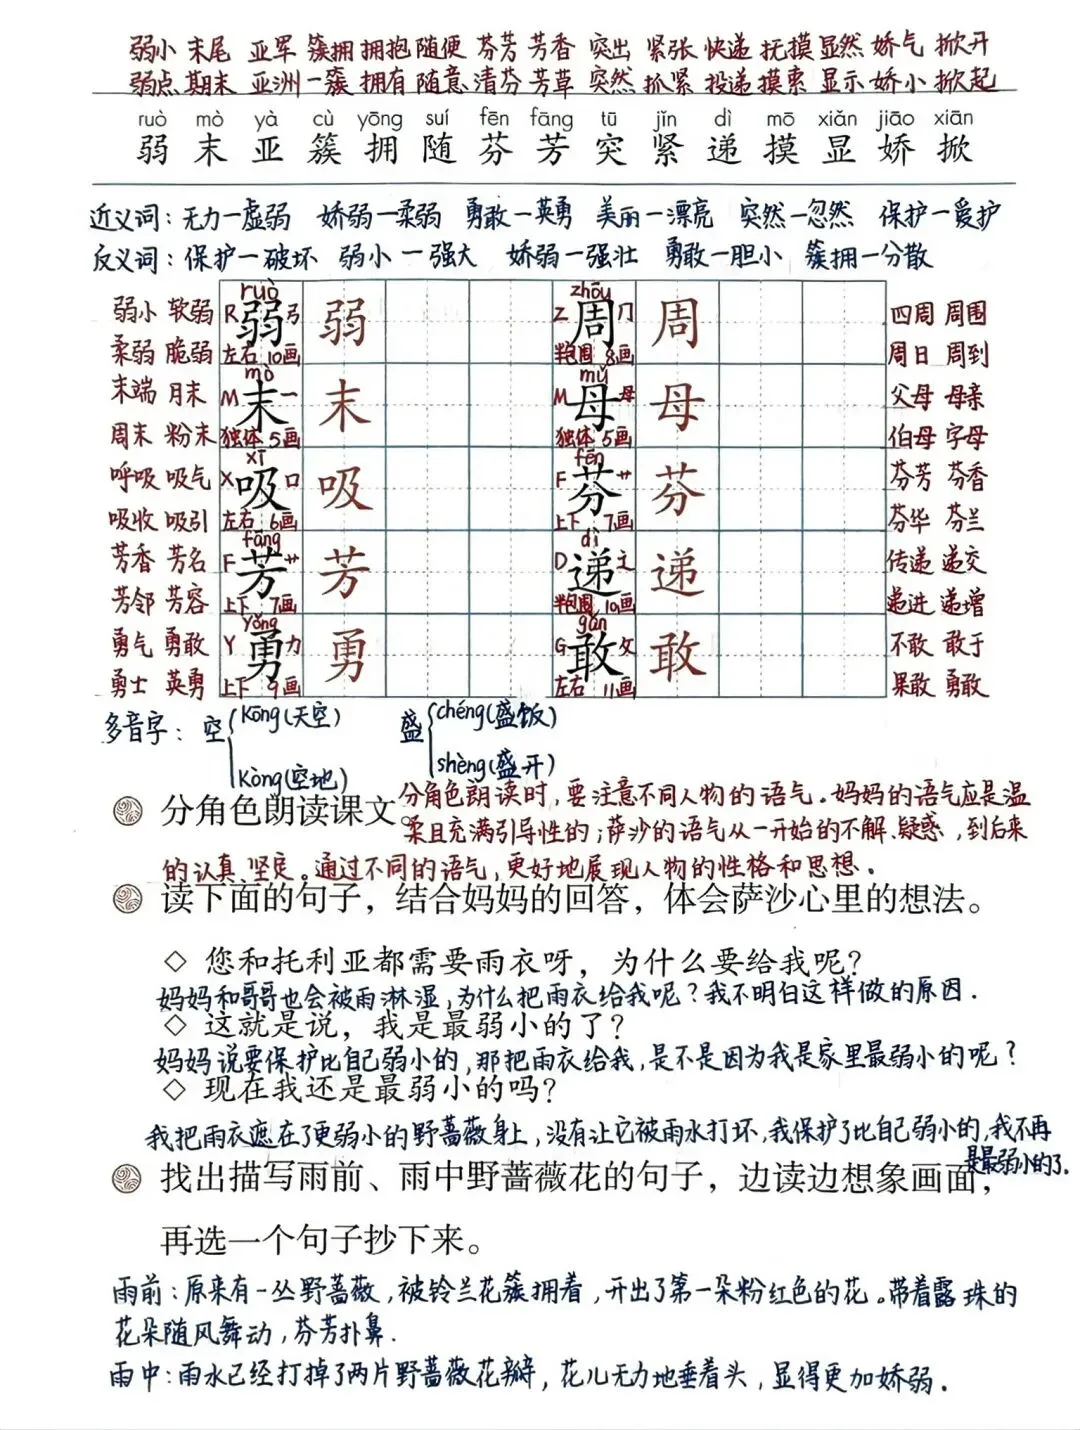 弱小 末尾 亚军 簇拥 拥抱 随便 芬芳 芳香 突出 紧张 快递 抚摸 显然 娇气 掀开
弱点 期末 亚洲 一簇 拥有 随意 清芬 芳草 突然 抓紧 投递 摸索 显示 娇小 掀起
ruò mò yà cù yōng suí fēn fāng tū jǐn dì mō xiǎn jiāo xiān
弱 末 亚 簇 拥 随 芬 芳 突 紧 递 摸 显 娇 掀
近义词：无力—虚弱 娇弱—柔弱 勇敢—英勇 美丽—漂亮 突然—忽然 保护—爱护
反义词：保护—破坏 弱小—强大 娇弱—强壮 勇敢—胆小 簇拥—分散
ruò zhōu
弱小 软弱 R 弱 弓 弱 Z 周 冂 周 四周 周围
柔弱 脆弱 左右 10画 半包围 8画 周日 周到
mò mǔ
末端 月末 M 末 一 末 M 母 母 母 父母 母亲
周末 粉末 独体 5画 独体 5画 伯母 字母
xī fēn
呼吸 吸气 X 吸 口 吸 F 芬 艹 芬 芬芳 芬香
吸收 吸引 左右 6画 上下 7画 芬华 芬兰
fāng dì
芳香 芳名 F 芳 艹 芳 D 递 辶 递 传递 递交
芳邻 芳容 上下 7画 半包围 10画 递进 递增
yǒng gǎn
勇气 勇敢 Y 勇 力 勇 G 敢 攵 敢 不敢 敢于
勇士 英勇 上下 9画 左右 11画 果敢 勇敢
多音字：空 kōng(天空) 盛 chéng(盛饭)
kòng(空地) shèng(盛开)
分角色朗读课文。
分角色朗读时，要注意不同人物的语气。妈妈的语气应是温
柔且充满引导性的；萨沙的语气从一开始的不解、疑惑，到后来
的认真、坚定。通过不同的语气，更好地展现人物的性格和思想。
读下面的句子，结合妈妈的回答，体会萨沙心里的想法。
◇ 您和托利亚都需要雨衣呀，为什么要给我呢？
妈妈和哥哥也会被雨淋湿，为什么把雨衣给我呢？我不明白这样做的原因.
◇ 这就是说，我是最弱小的了？
妈妈说要保护比自己弱小的，那把雨衣给我，是不是因为我是家里最弱小的呢？
◇ 现在我还是最弱小的吗？
我把雨衣遮在了更弱小的野蔷薇身上，没有让它被雨水打坏，我保护了比自己弱小的，我不再
是最弱小的了.
找出描写雨前、雨中野蔷薇花的句子，边读边想象画面，
再选一个句子抄下来。
雨前：原来有一丛野蔷薇，被铃兰花簇拥着，开出了第一朵粉红色的花。带着露珠的
花朵随风舞动，芬芳扑鼻.
雨中：雨水已经打掉了两片野蔷薇花瓣，花儿无力地垂着头，显得更加娇弱.